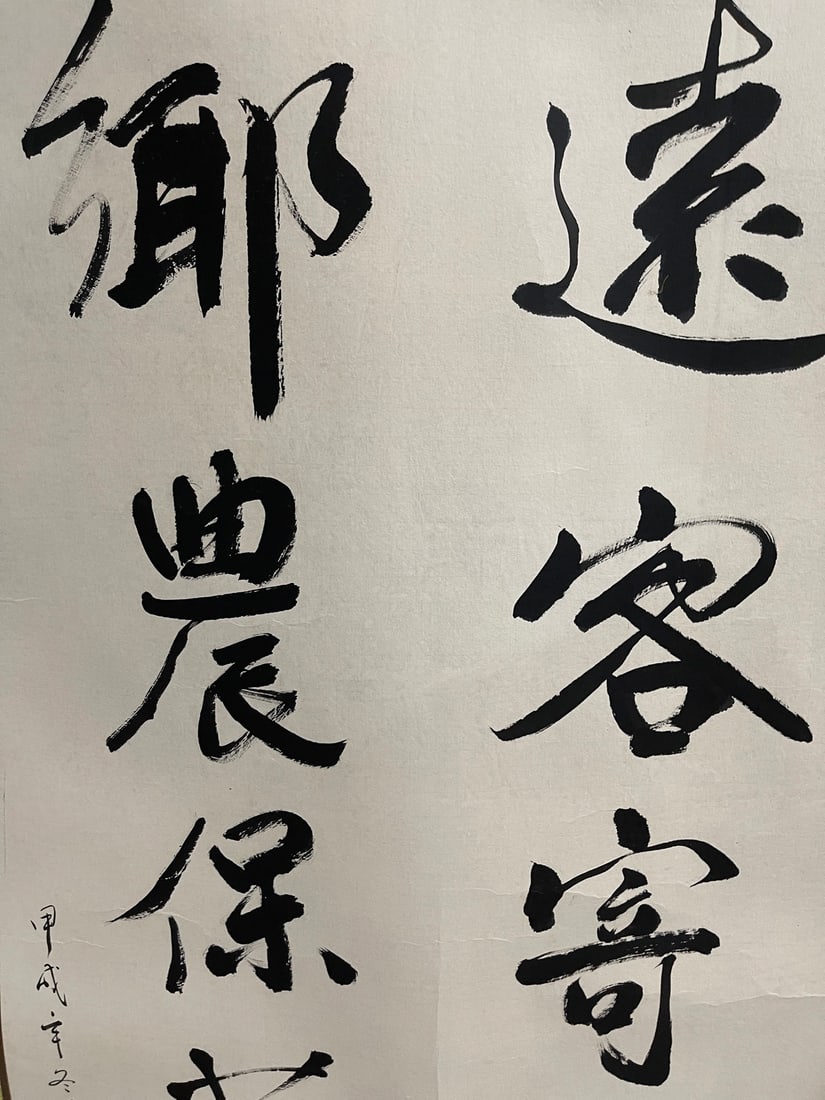 遠客寄
鄉農保
甲戌年冬